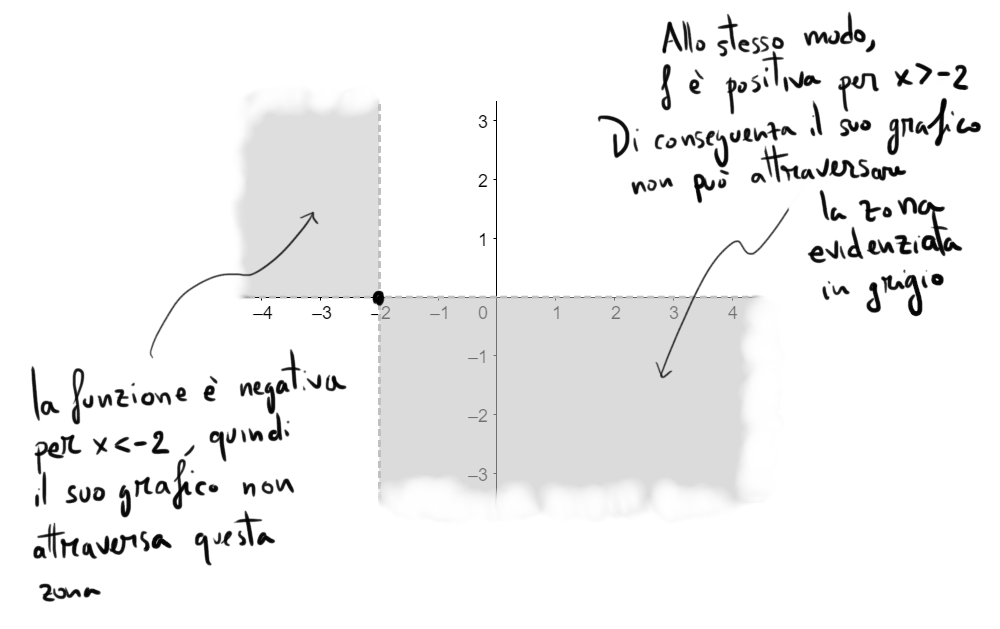 Allo stesso modo,
f è positiva per x>-2
Di conseguenza il suo grafico
non può attraversare
la zona
evidenziata
in grigio
3
2
1
−4 −3 −2 −1 0 1 2 3 4
−1
−2
−3
la funzione è negativa
per x<-2, quindi
il suo grafico non
attraversa questa
zona